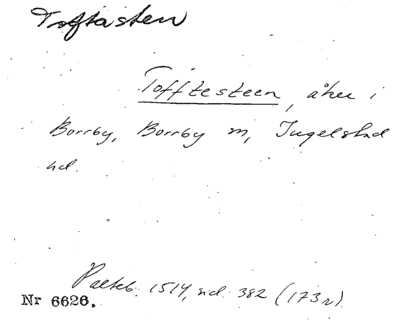 Toftasten
Tofftesteen, åker i
Borrby, Borrby sn, Ingelstad
hd.
Palteb. 1514, sid. 382 (173r).
Nr 6626.